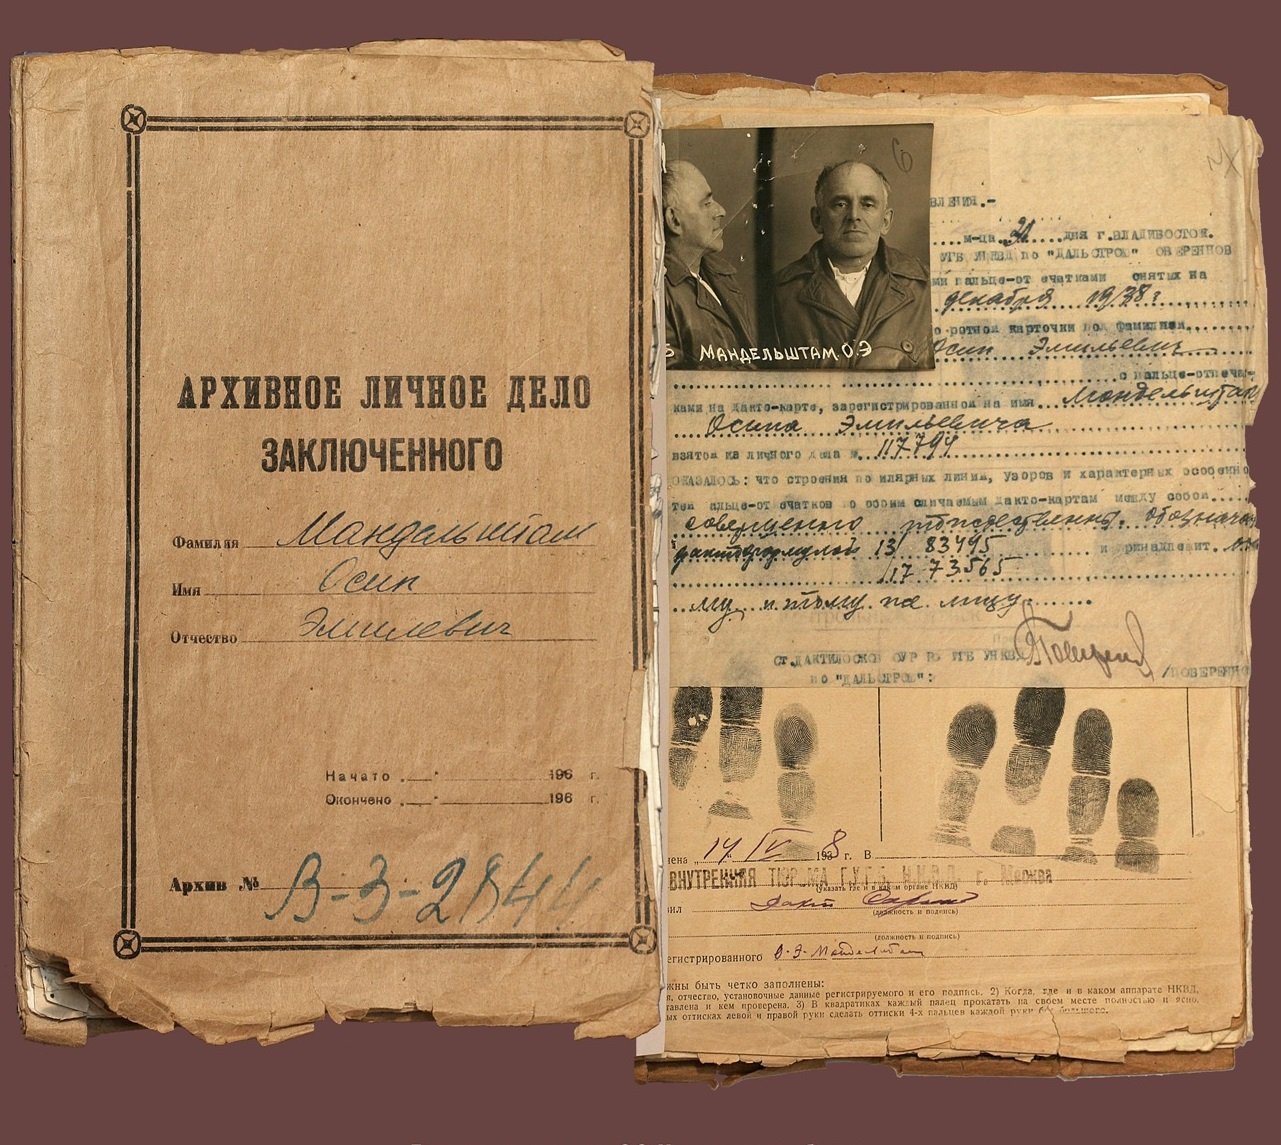 АРХИВНОЕ ЛИЧНОЕ ДЕЛО
ЗАКЛЮЧЕННОГО
Фамилия Мандельштам
Имя Осип
Отчество Эмилевич
Начато „ — " 196 г.
Окончено „ — " 196 г.
Архив № В-3-2844
6
МАНДЕЛЬШТАМ О.Э
ВЛЕНИЯ.-
м-ца 31 дня г. ВЛАДИВОСТОК.
УГБ УНКВД по "ДАЛЬСТРОЮ"
пальце-от ечатками снятых на
декабря 1938 г
карточки под фамилией
Осип Эмильевич
с пальце-отпечат-
ками на дакто-карте, зарегистрированной на имя Мандельштам
Осипа Эмильевича
взятой из личного дела № 117794
ОКАЗАЛОСЬ: что строения по илярных линий, узоров и характерных особенно
тей альце-от ечатков по обоим сличаемым дакто-картам между собой
совершенно тождественны обознача
дактоформулой 13 83495 и ринадлежит
/17 73565
му и тому же лицу
СТ. ДАКТИЛОСКОП ОУР
по "ДАЛЬСТРОЮ":
/ПОВЕРЕННО
ена „14" IV 1938 г. В
ВНУТРЕННЯЯ ТЮРЬМА Г.У.Г.Б. Н.К.В.Д. Гор Москва
(указать где и в каком органе НКВД)
ил
(должность и подпись)
(должность и подпись)
егистрированного О. Э. Мандельштам
жны быть четко заполнены:
я, отчество, установочные данные регистрируемого и его подпись. 2) Когда, где и в каком аппарате НКВД,
тавлена и кем проверена. 3) В квадратиках каждый палец прокатать на своем месте полностью и ясно.
ых оттисках левой и правой руки сделать оттиски 4-х пальцев каждой руки без большого.